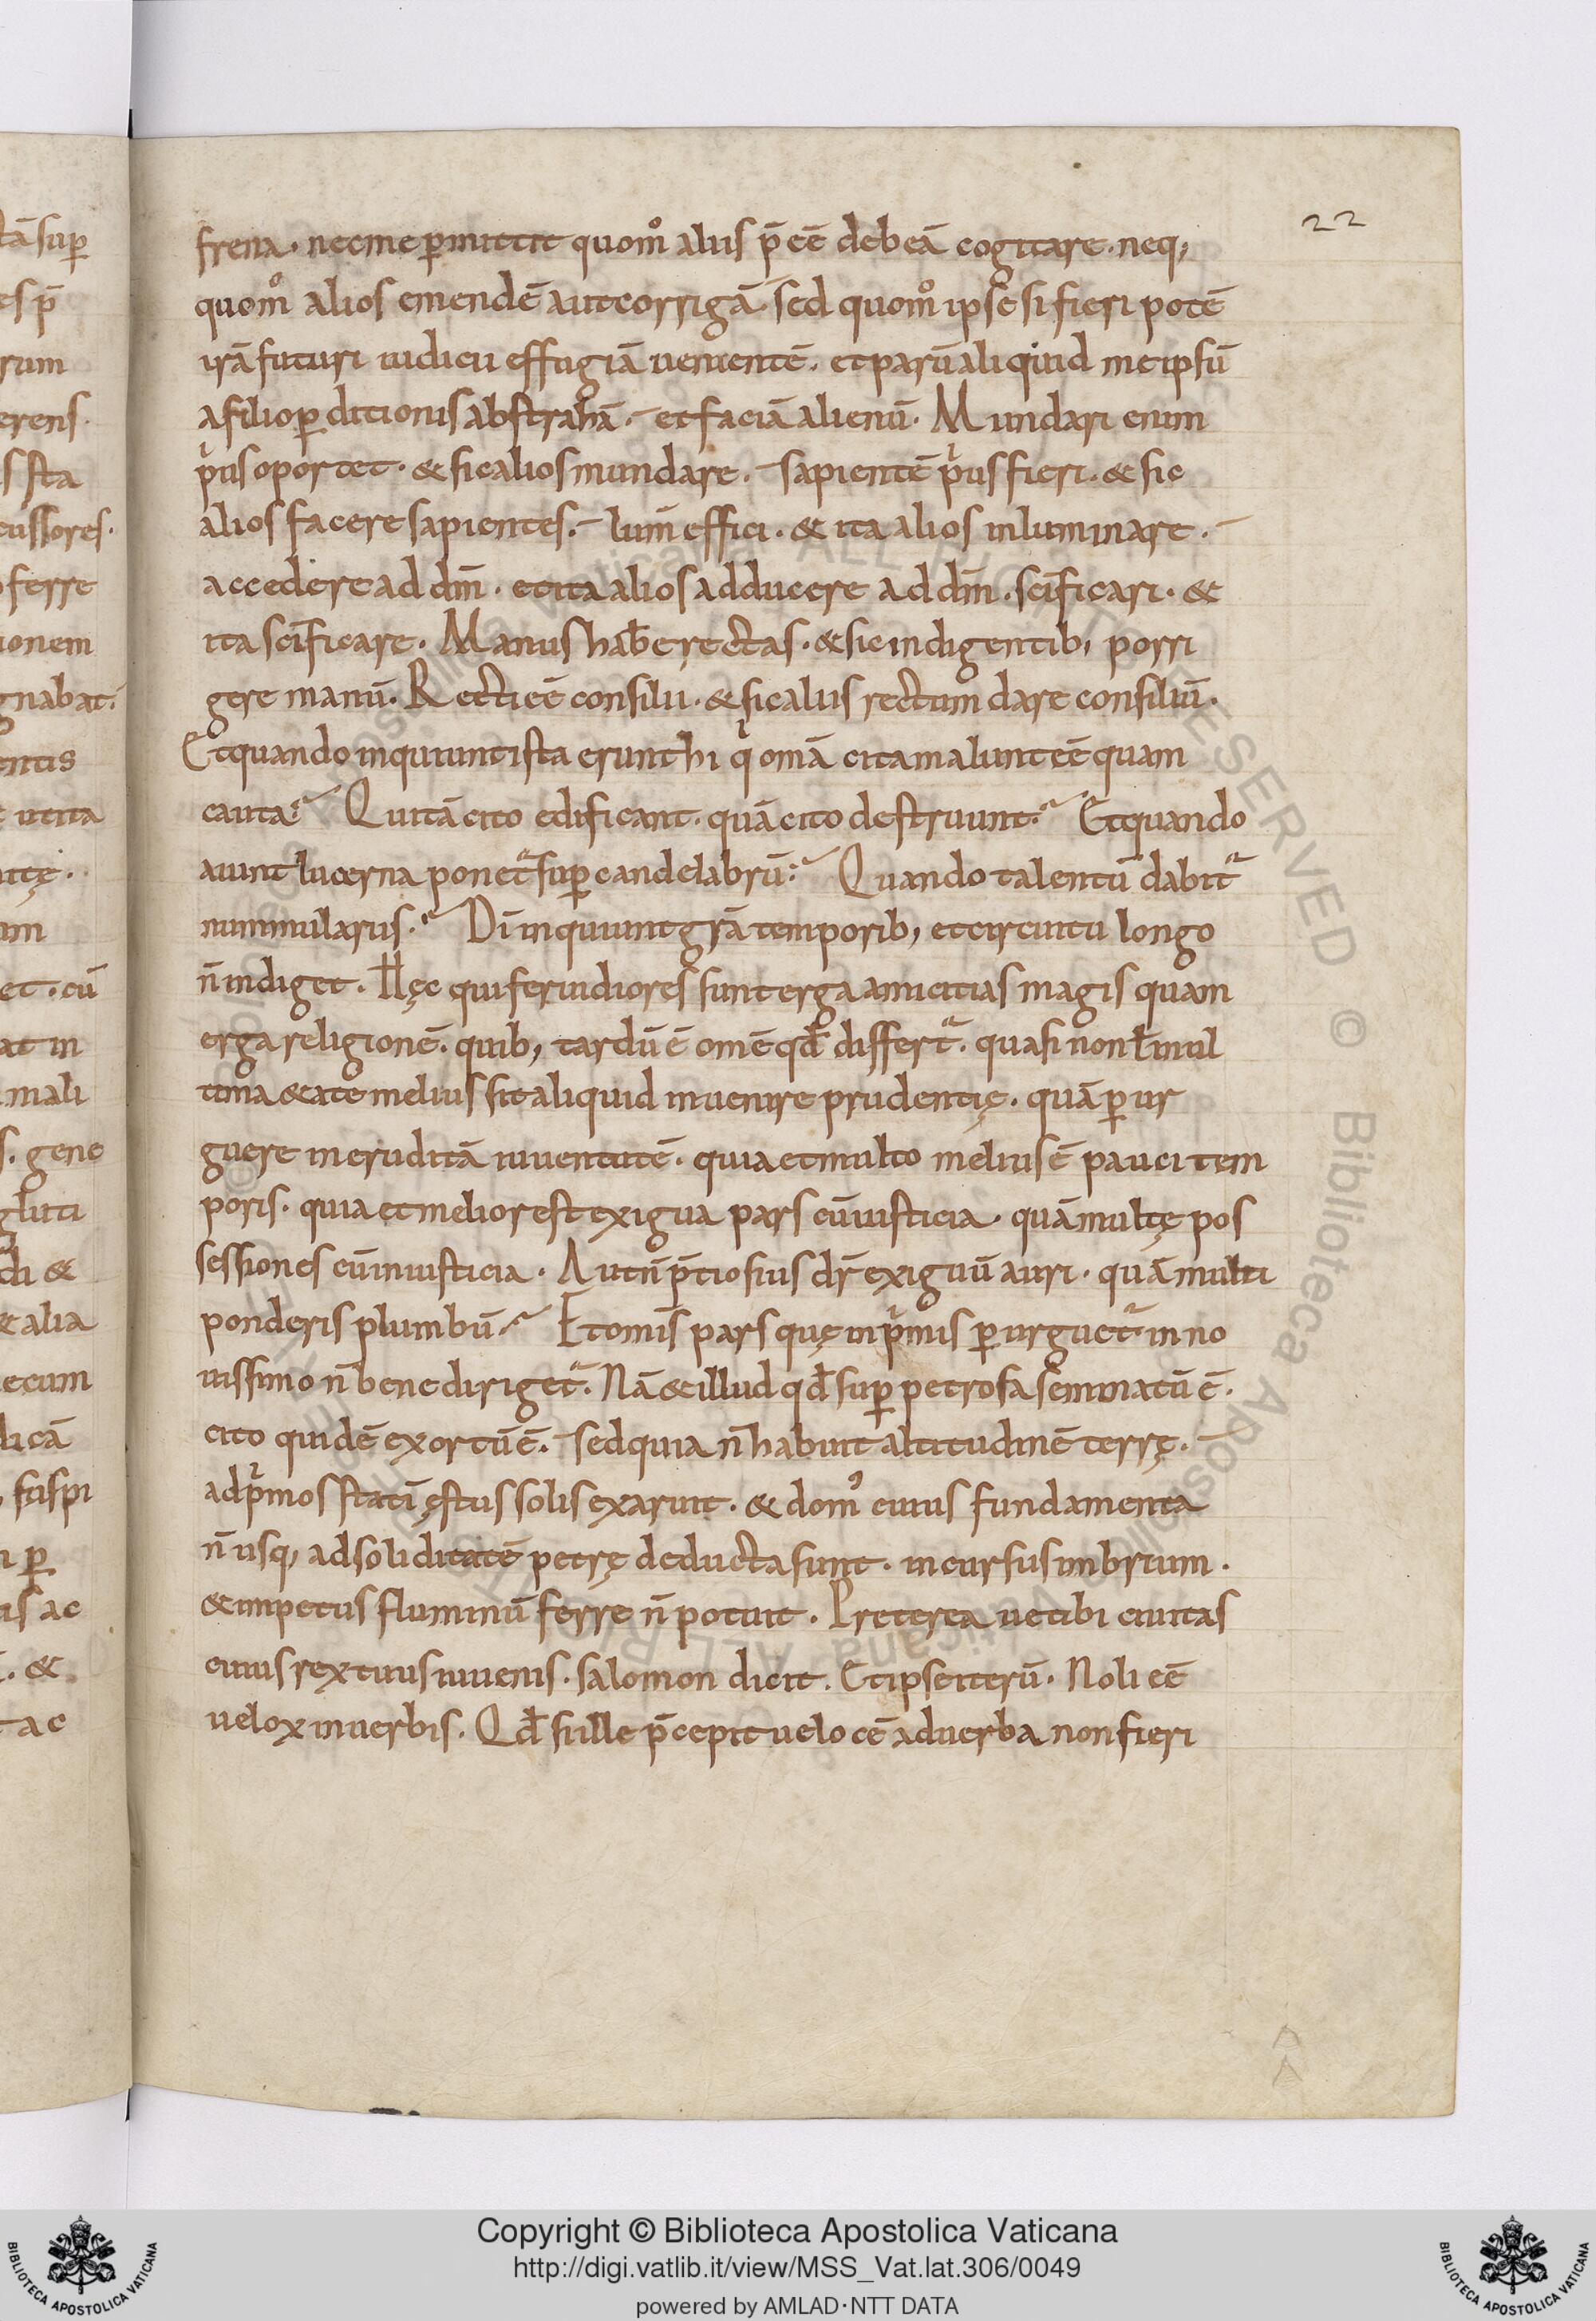 22
frena. nec me ꝑmittit quom̊ aliis p̄ eē debeā cogitare. neq;
quom̊ alios emendē aut corrigā. sed quom̊ ipse si fieri potē
irā futuri iudicii effugiā uenientē. et parū aliquid me ipsū
a filio ꝑditionis abstrahā. et faciā alienū. Mundari enim
pͥus oportet. & sic alios mundare. sapientē pͥus fieri. & sic
alios facere sapientes. lum̄ effici. & ita alios inluminare.
accedere ad dm̄. et ita alios adducere ad dm̄. sc̄ificari. &
ita sc̄ificare. Manus hab̄e rectas. & sic indigentib; porri
gere manū. Recti eē consilii. & sic aliis rectum dare consiliū.
Et quando inquiunt ista erunt hi qͥ om̄a cita malunt eē quam
cauta? Qui tā cito edificant. quā cito destruunt? Et quando
aiunt lucerna ponet᷑ suꝑ candelabrū? Quando talentū dabit᷑
nummulariis? Dī inquiunt gr̄a temporib; et circuitu longo
n̄ indiget. Hęc qui feruidiores sunt erga amicitias magis quam
erga religionē. quib; tardū ē om̄e qđ differt᷑. quasi non ł in ul
tima ętate melius sit aliquid inuenire prudentię. quā ꝑ ur
guere ineruditā iuuentutē. quia et multo melius ē pauci tem
poris. quia et melior est exigua pars cū iusticia. quā multę pos
sessiones cū iniusticia. Aut n̄ p̄tiosius dr̄ exiguū auri. quā multi
ponderis plumbū? Et om̄is pars quę in pͥmis ꝑurguet᷑ in no
uissimo n̄ bene diriget᷑. Nā & illud qđ suꝑ petrosa seminatū ē.
cito quidē exortū ē. sed quia n̄ habuit altitudinē terrę.
ad pͥmos statī ęstus solis exaruit. & dom᷒ cuius fundamenta
n̄ usq; ad soliditatē petrę deducta sunt. incursus imbrium.
& impetus fluminū ferre n̄ potuit. Preterea ue tibi ciuitas
cuius rex tuus iuuenis. salomon dicit. Et ipse iterū. Noli eē
uelox in uerbis. Qđ si ille p̄cepit uelocē ad uerba non fieri
Copyright © Biblioteca Apostolica Vaticana
http://digi.vatlib.it/view/MSS_Vat.lat.306/0049
powered by AMLAD·NTT DATA
BIBLIOTECA APOSTOLICA VATICANA
BIBLIOTECA APOSTOLICA VATICANA